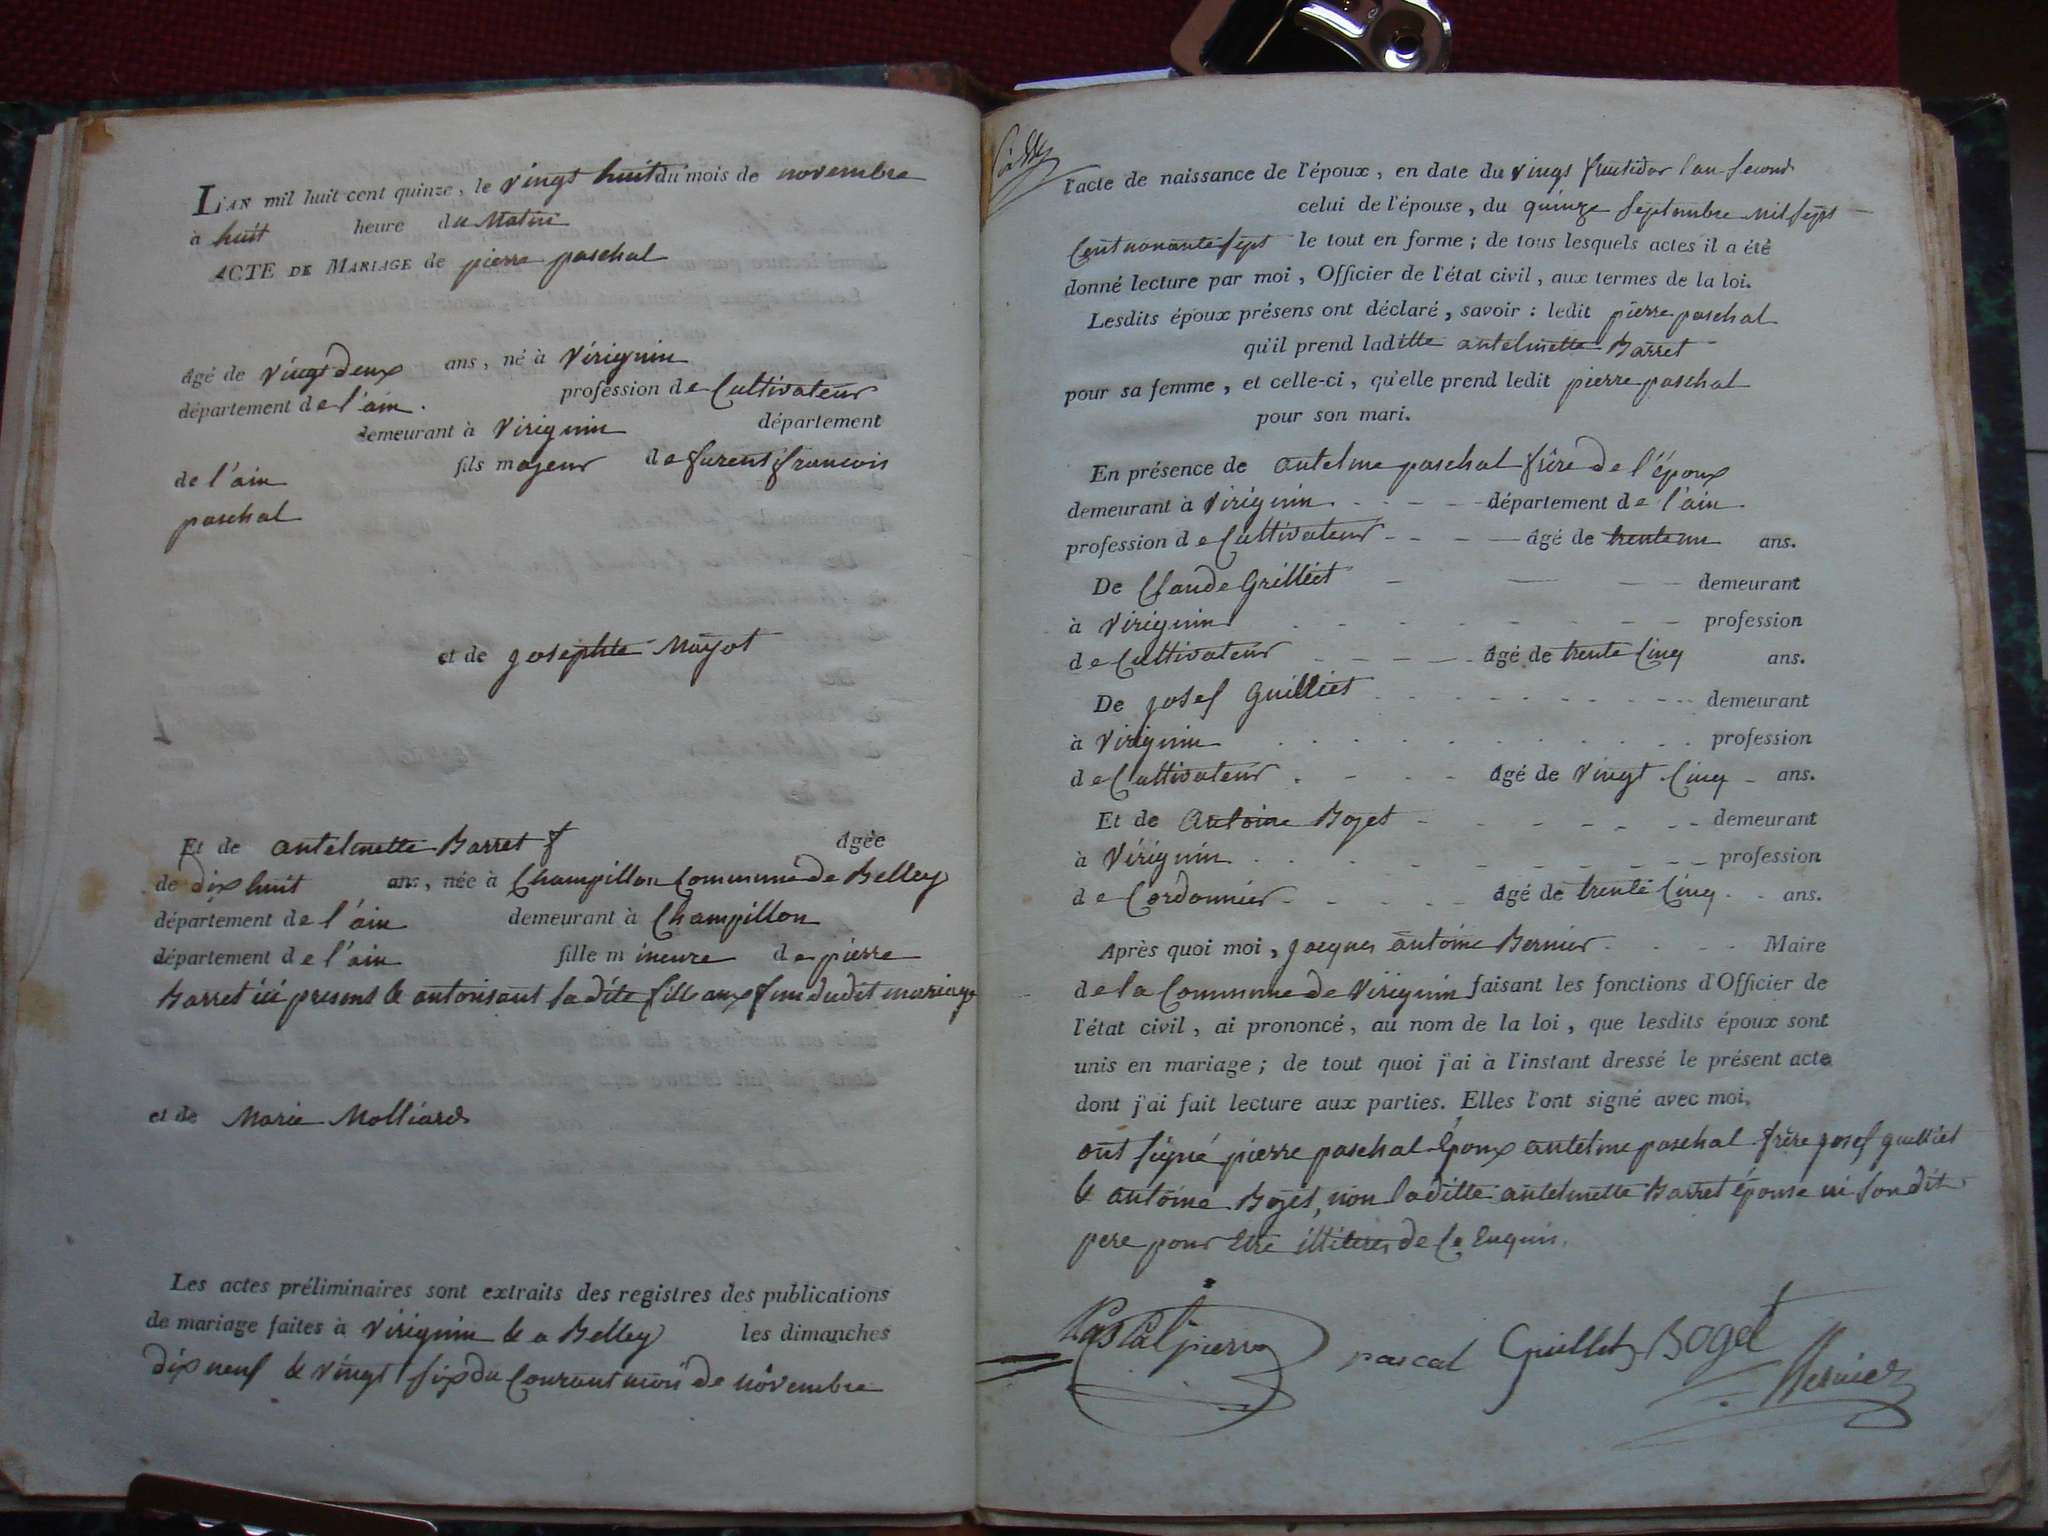 L'AN mil huit cent quinze, le vingt huit du mois de novembre
à huit heure du Matin
ACTE DE MARIAGE de pierre paschal
âgé de vingt deux ans, né à Virignin
département de l'ain. profession de Cultivateur
demeurant à Virignin département
de l'ain fils majeur de furent francois
paschal
et de josephte Mayot
Et de antelmette Barret âgée
de dix huit ans, née à Champillon Commune de Belley
département de l'ain demeurant à Champillon
département de l'ain fille mineure de pierre
Barret ici present & autorisant ladite fille aux fins dudit mariage
et de Marie Molliard
Les actes préliminaires sont extraits des registres des publications
de mariage faites à Virignin & a Belley les dimanches
dix neuf & vingt six du Courant mois de novembre
l'acte de naissance de l'époux, en date du vingt fructidor l'an second
celui de l'épouse, du quinze septembre mil sept
Cent nonante sept le tout en forme; de tous lesquels actes il a été
donné lecture par moi, Officier de l'état civil, aux termes de la loi.
Lesdits époux présens ont déclaré, savoir : ledit pierre paschal
qu'il prend laditte antelmette Barret
pour sa femme, et celle-ci, qu'elle prend ledit pierre paschal
pour son mari.
En présence de antelme paschal frère de l'époux
demeurant à Virignin département de l'ain
profession de Cultivateur âgé de trente un ans.
De Claude Grilliet demeurant
à Virignin profession
de Cultivateur âgé de trente Cinq ans.
De josef Guilliet demeurant
à Virignin profession
de Cultivateur âgé de vingt Cinq ans.
Et de Antoine Bojet demeurant
à Virignin profession
de Cordonnier âgé de trente Cinq ans.
Après quoi moi, jacques antoine Bernier Maire
de la Commune de Virignin faisant les fonctions d'Officier de
l'état civil, ai prononcé, au nom de la loi, que lesdits époux sont
unis en mariage; de tout quoi j'ai à l'instant dressé le présent acte
dont j'ai fait lecture aux parties. Elles l'ont signé avec moi.
ont signé pierre paschal époux antelme paschal frère josef guilliet
& antoine Bojet, non laditte antelmette Barret épouse ni son dit
pere pour etre illiterés de Ce Enquis.
Pascal pierre pascal Guillet Boget
Bernier